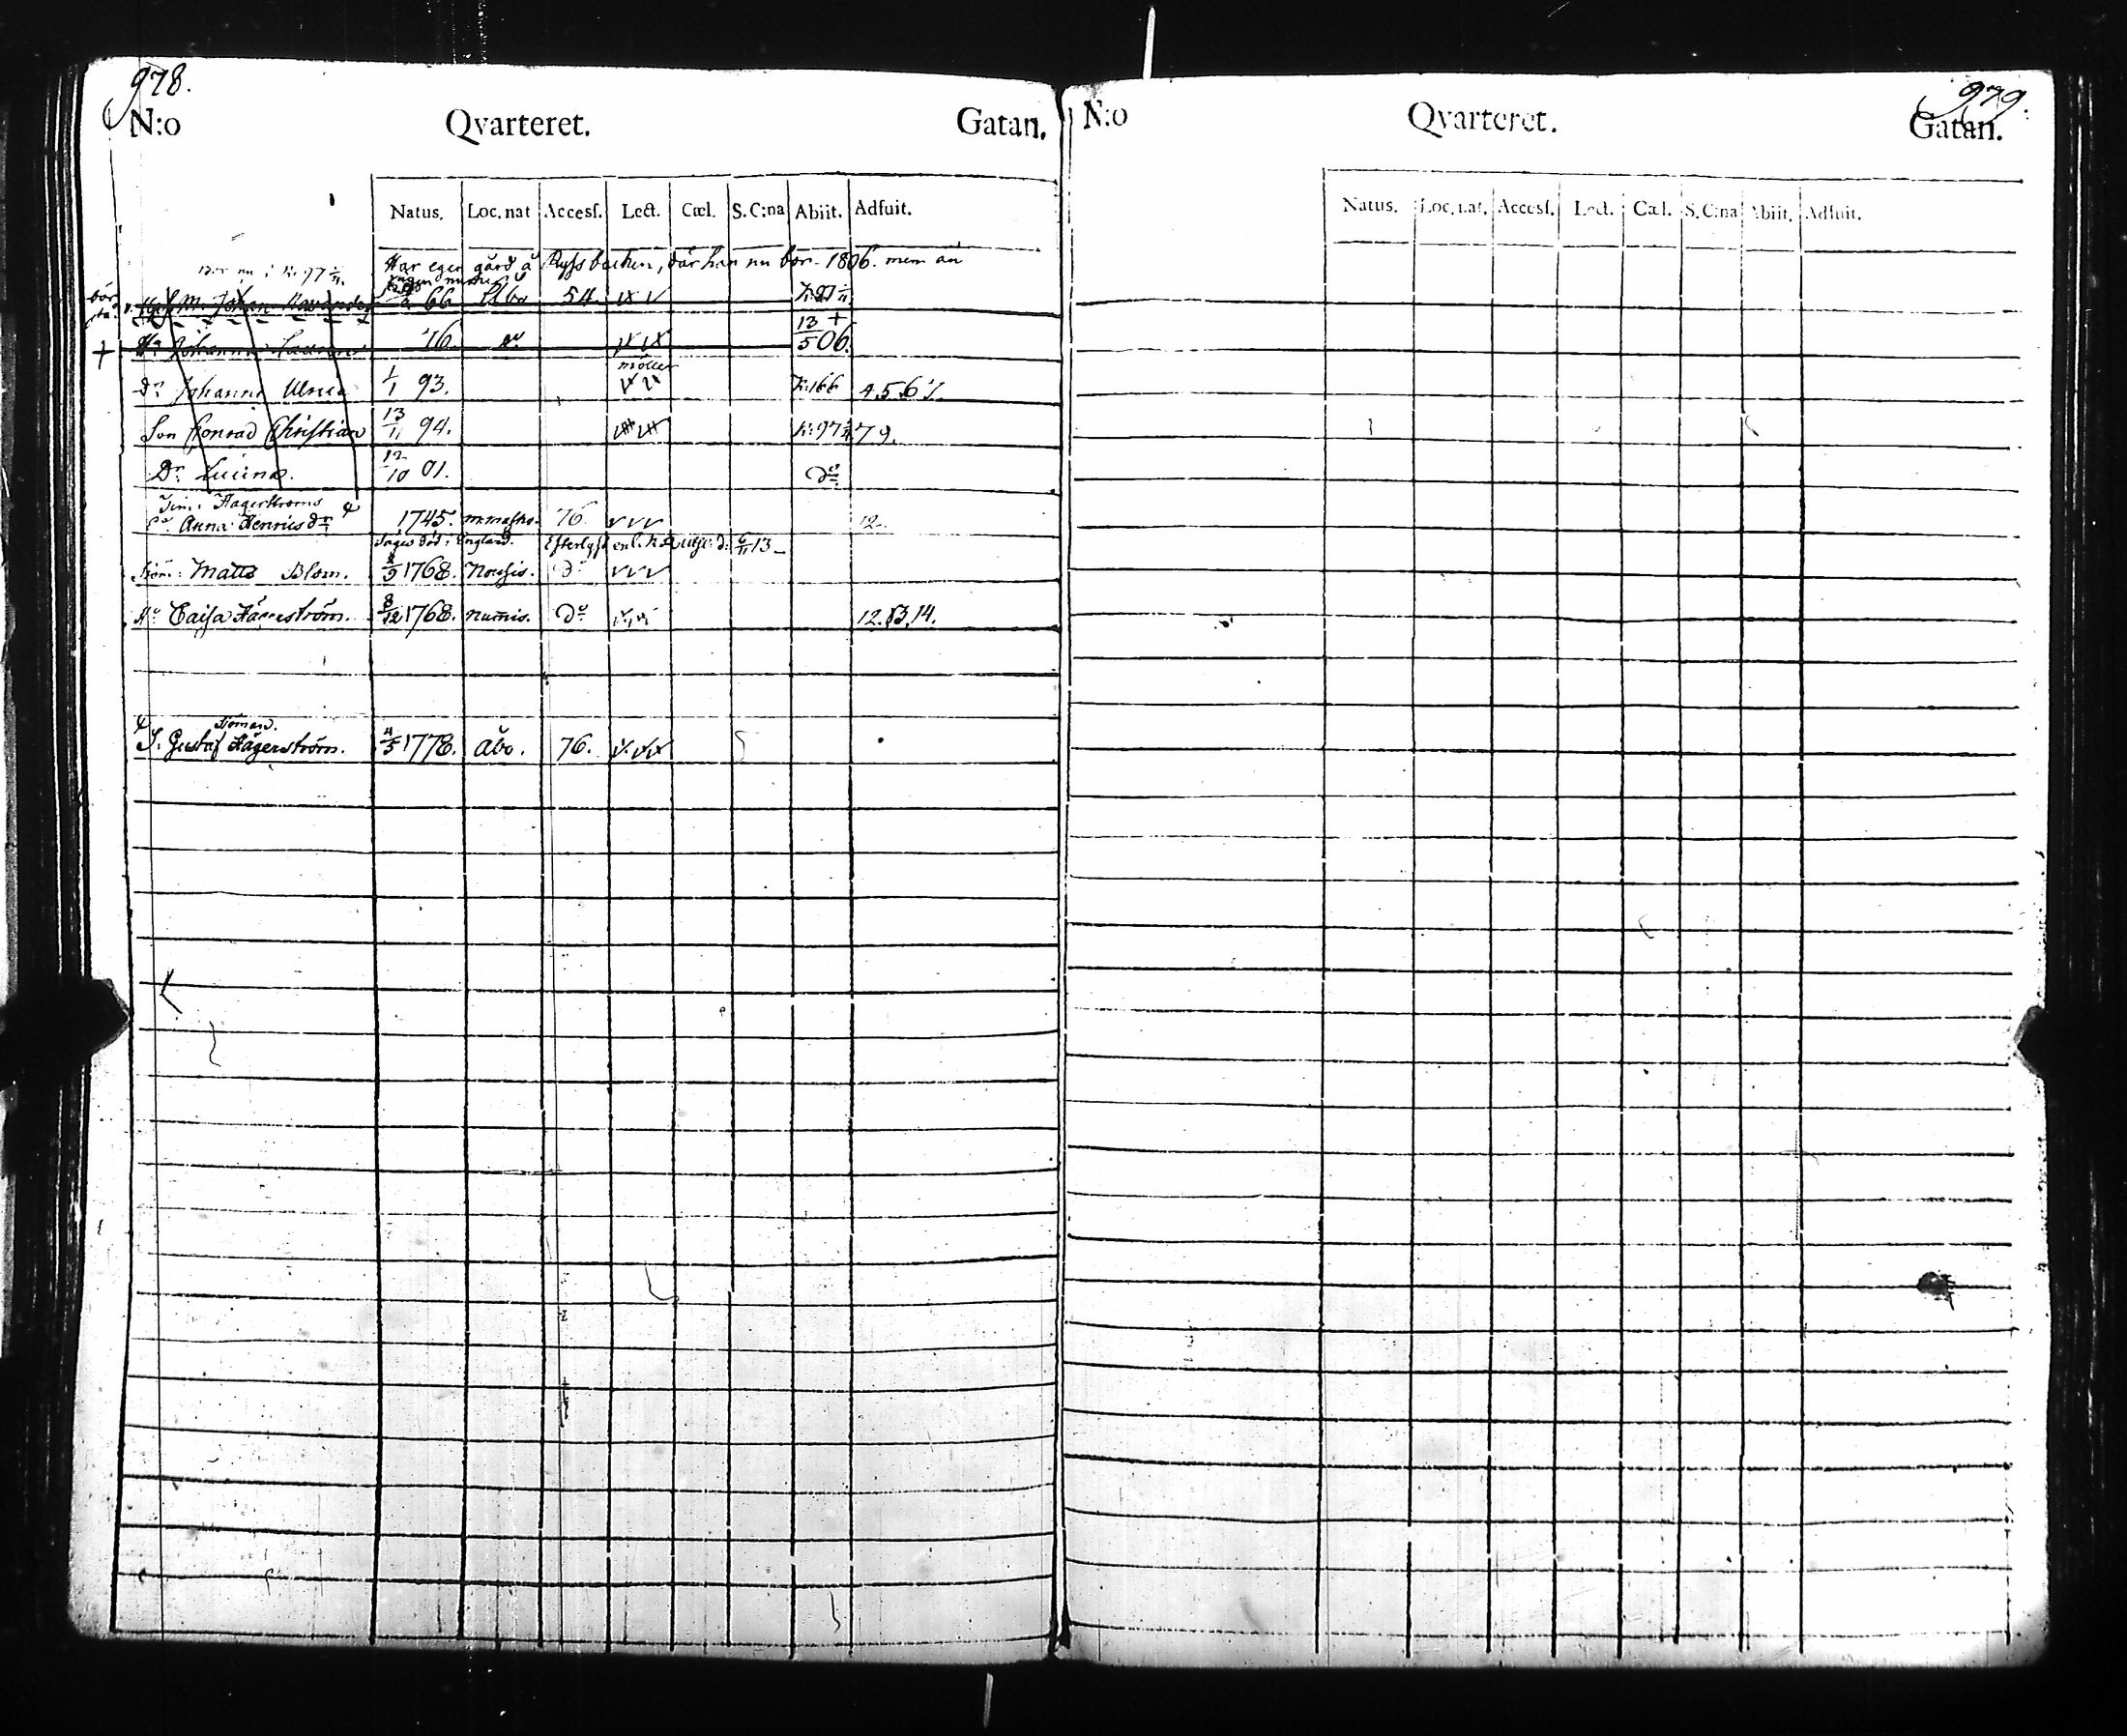 978.
N:o Qvarteret. Gatan.
Natus. Loc. nat Accesſ. Lect. Cæl. S. C:na Abiit. Adfuit.
Har egen gård å Ryssbacken, där han nu bor 1806. men än
bor nu i N: 97
66 Åbo 54
+ H:u Johanna 76. d:o 13/5 06. +
D:r Johanna Ulrica 1/1 93. N:166 4.5.6.7.
Son Conrad Christian 13/11 94. N:97 7 9.
D:r Lucina. 12/10 01. d:o
Tim: Hagerströms
E:a Anna Henricsd:r 1745. 76. 12.
Säges död i England. Efterlyst enl. 6/11 13
Matts Blom. 8/9 1768. Nousis. d:o
H:u Caisa Hägerström. 8/12 1768. Numis. d:o 12.13.14.
S. Gustaf Hägerström. 4/5 1778. Åbo. 76.
979.
N:o Qvarteret. Gatan.
Natus. Loc. nat. Accesſ. Lect. Cæl. S. C:na Abiit. Adfuit.